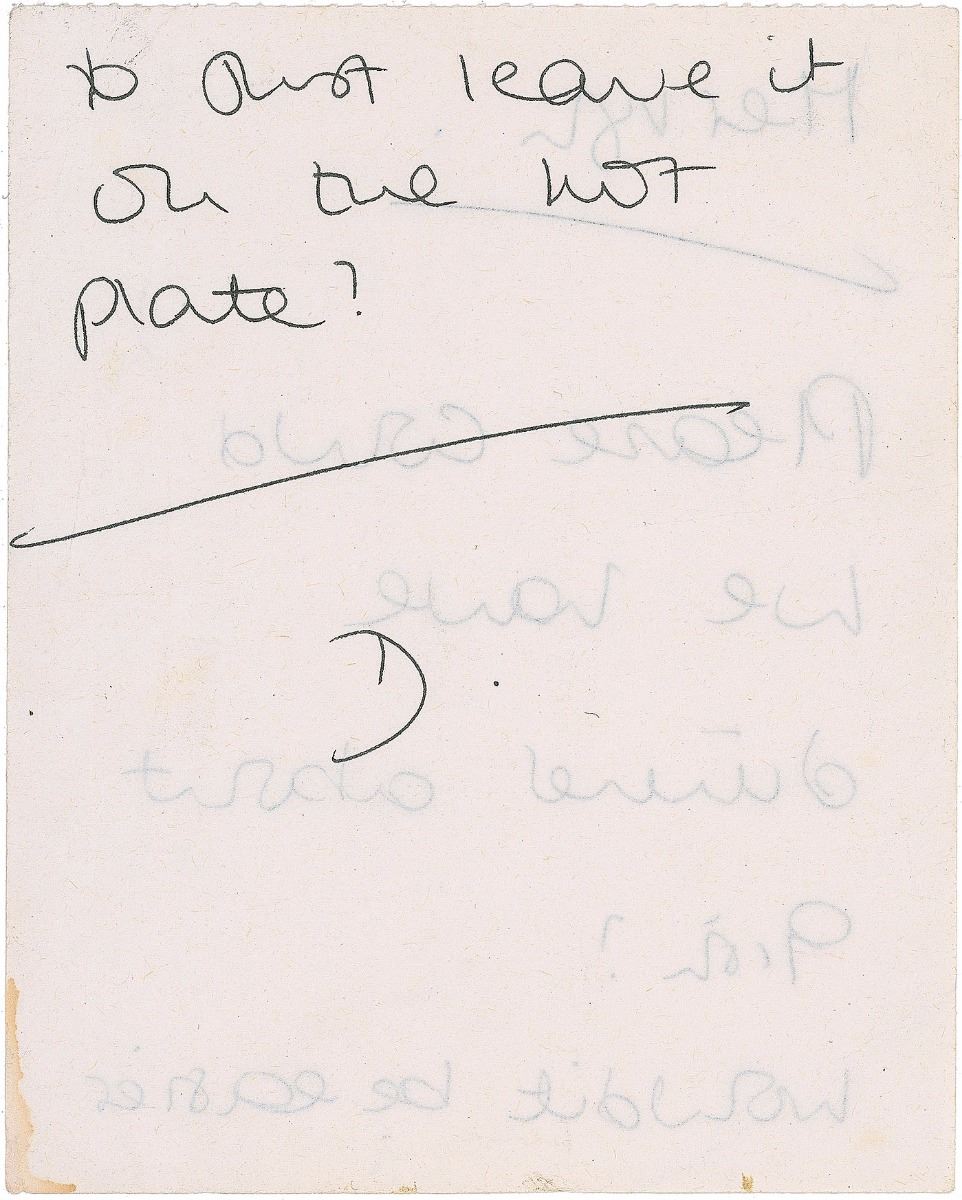 to just leave it
on the hot
plate?
D.